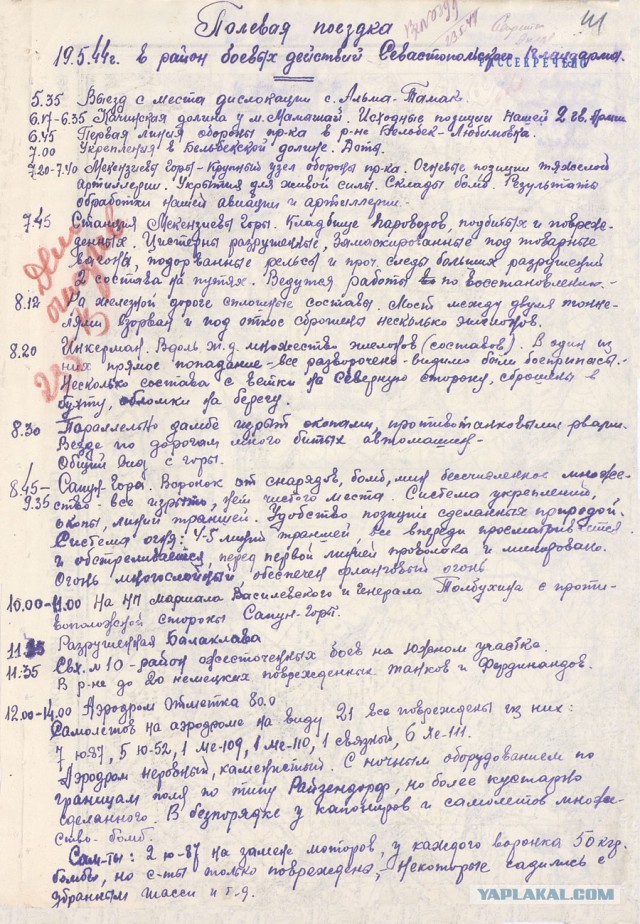 Полевая поездка
41
19.5.44г. в район боевых действий Севастопольского плацдарма.
РАССЕКРЕЧЕНО
5.35 Выезд с места дислокации с. Альма-Тамак.
6.17-6.35 Качинская долина у м. Мамашай. Исходные позиции нашей 2 гв. Армии
6.45 Первая линия обороны пр-ка в р-не Бельбек-Любимовка.
7.00 Укрепления в Бельбекской долине. Доты.
7.20-7.40 Мекензиевы Горы-Крупный узел обороны пр-ка. Огневые позиции тяжелой
артиллерии. Укрытия для живой силы. Склады бомб. Результаты
обработки нашей авиации и артиллерии.-
7.45 Станция Мекензиевы Горы. Кладбище паровозов, подбитых и повреж-
денных. Цистерны разрушенные, замаскированные под товарные
вагоны, подорванные рельсы и проч. следы больших разрушений
2 состава на путях. Ведутся работы по восстановлению.-
8.12 На железной дороге сплошные составы. Мост между двумя тонне-
лями взорван и под откос сброшены несколько эшелонов.
8.20 Инкерман. Вдоль ж.д. множество эшелонов (составов). В один из
них прямое попадание-все разворочено-видимо были боеприпасы.-
Несколько состава с ветки на Северную сторону, сброшены в
бухту, обломки на берегу.
8.30 Параллельно дамбе изрыт окопами, противотанковыми рвами.
Везде по дорогам много битых автомашин-
Общий вид с горы.
8.45-
9.35 Сапун-Гора. Воронок от снарядов, бомб, мин бесчисленное множе-
ство-все изрыто, нет чистого места. Система укреплений,
окопы, линий траншей. Удобство позиций сделанных природой.
Система огня: 4-5 линий траншей, все впереди просматривается
и обстреливается, перед первой линией проволока и минировано.
Огонь многослойный, обеспечен фланговый огонь
10.00-11.00 На НП маршала Василевского и генерала Толбухина с проти-
воположной стороны Сапун-Горы.
11.35 Разрушенная Балаклава
11.35 Свх. №10-район ожесточенных боев на южном участке.
В р-не до 20 немецких поврежденных танков и Фердинандов.
12.00-14.00 Аэродром Отметка 80.0
Самолетов на аэродроме на виду 21 все повреждены из них:
7 ю-87, 5 ю-52, 1 Ме-109, 1 Ме-110, 1 связной, 6 Хе-111.
Аэродром неровный, каменистый. С ночным оборудованием по
границам поля по типу Райзендорф, но более кустарно
сделанного. В безпорядке у капониров и самолетов множе-
ство бомб.
Сам-ты: 2 ю-87 на замене моторов, у каждого воронка 50 кгр.
бомбы, но с-ты только повреждены, некоторые садились с
убранным шасси и т-д.
YAPLAKAL.COM